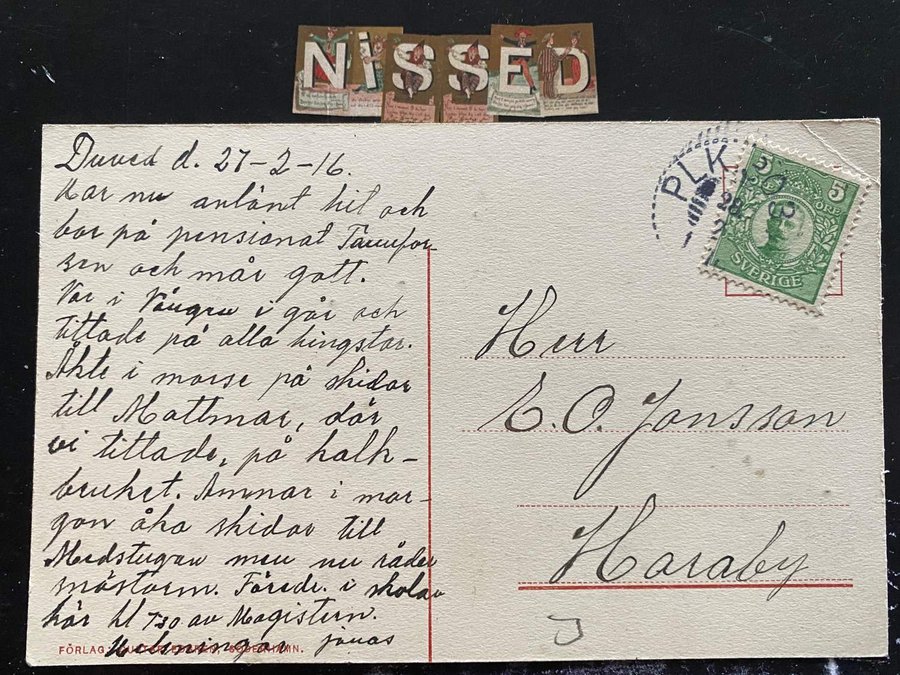 NISSED
Duved d. 27-2-16.
Har nu anlänt hit och
bor på pensionat Tännfor-
sen och mår gott.
Var i Vången i går och
tittade på alla hingstar.
Åkte i morse på skidor
till Mattmar, där
vi tittade, på kalk-
bruket. Ämnar i mor-
gon åka skidor till
Medstugan men nu råder
snöstorm. Föredr. i skolan
här kl 730 av Magistern.
Hälsningar jonas
FÖRLAG:
SÖDERHAMN.
PLK
28
2
5
ÖRE
SVERIGE
Herr
E. O. Jonsson
Haraby